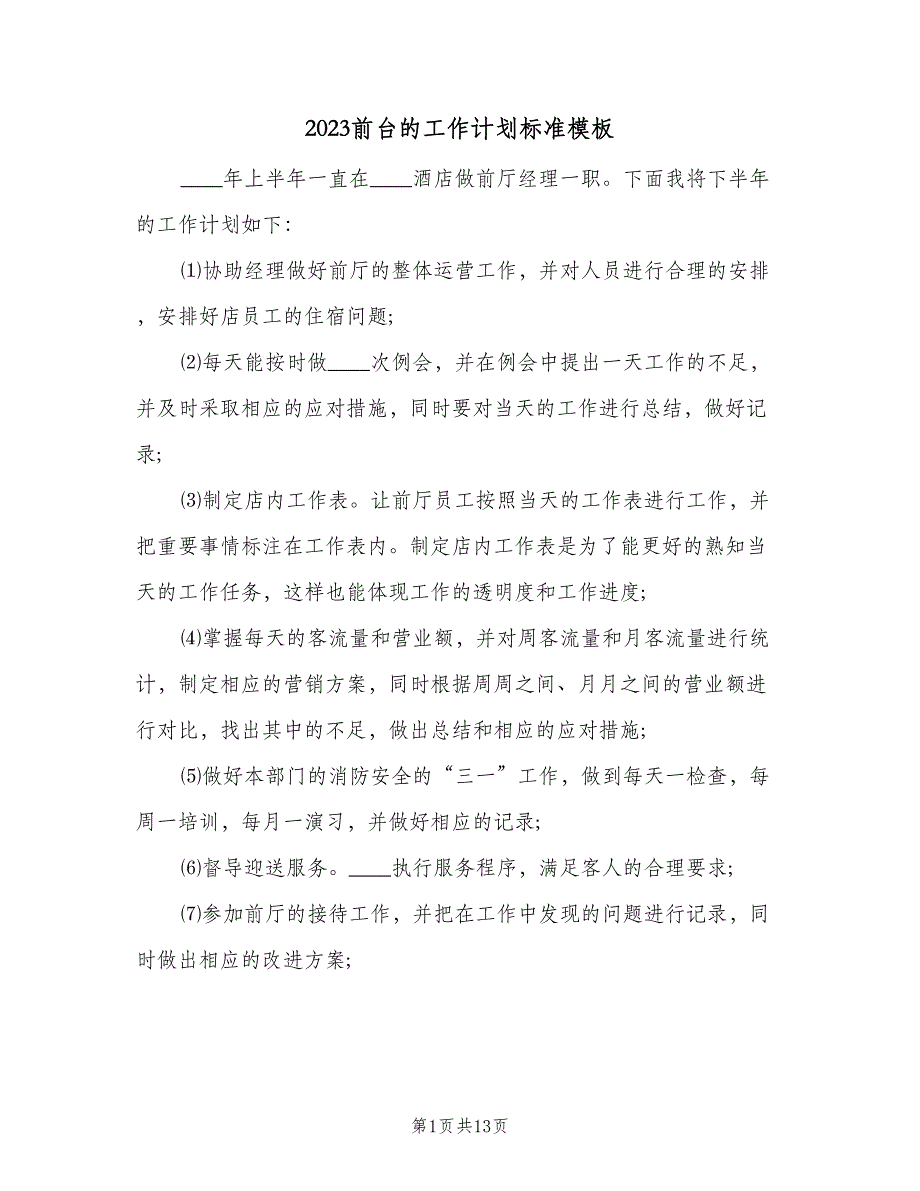 2023前台的工作计划标准模板
____年上半年一直在____酒店做前厅经理一职。下面我将下半年
的工作计划如下：
⑴协助经理做好前厅的整体运营工作，并对人员进行合理的安排
，安排好店员工的住宿问题;
⑵每天能按时做____次例会，并在例会中提出一天工作的不足，
并及时采取相应的应对措施，同时要对当天的工作进行总结，做好记
录;
⑶制定店内工作表。让前厅员工按照当天的工作表进行工作，并
把重要事情标注在工作表内。制定店内工作表是为了能更好的熟知当
天的工作任务，这样也能体现工作的透明度和工作进度;
⑷掌握每天的客流量和营业额，并对周客流量和月客流量进行统
计，制定相应的营销方案，同时根据周周之间、月月之间的营业额进
行对比，找出其中的不足，做出总结和相应的应对措施;
⑸做好本部门的消防安全的“三一”工作，做到每天一检查，每
周一培训，每月一演习，并做好相应的记录;
⑹督导迎送服务。____执行服务程序，满足客人的合理要求;
⑺参加前厅的接待工作，并把在工作中发现的问题进行记录，同
时做出相应的改进方案;
第1页共13页